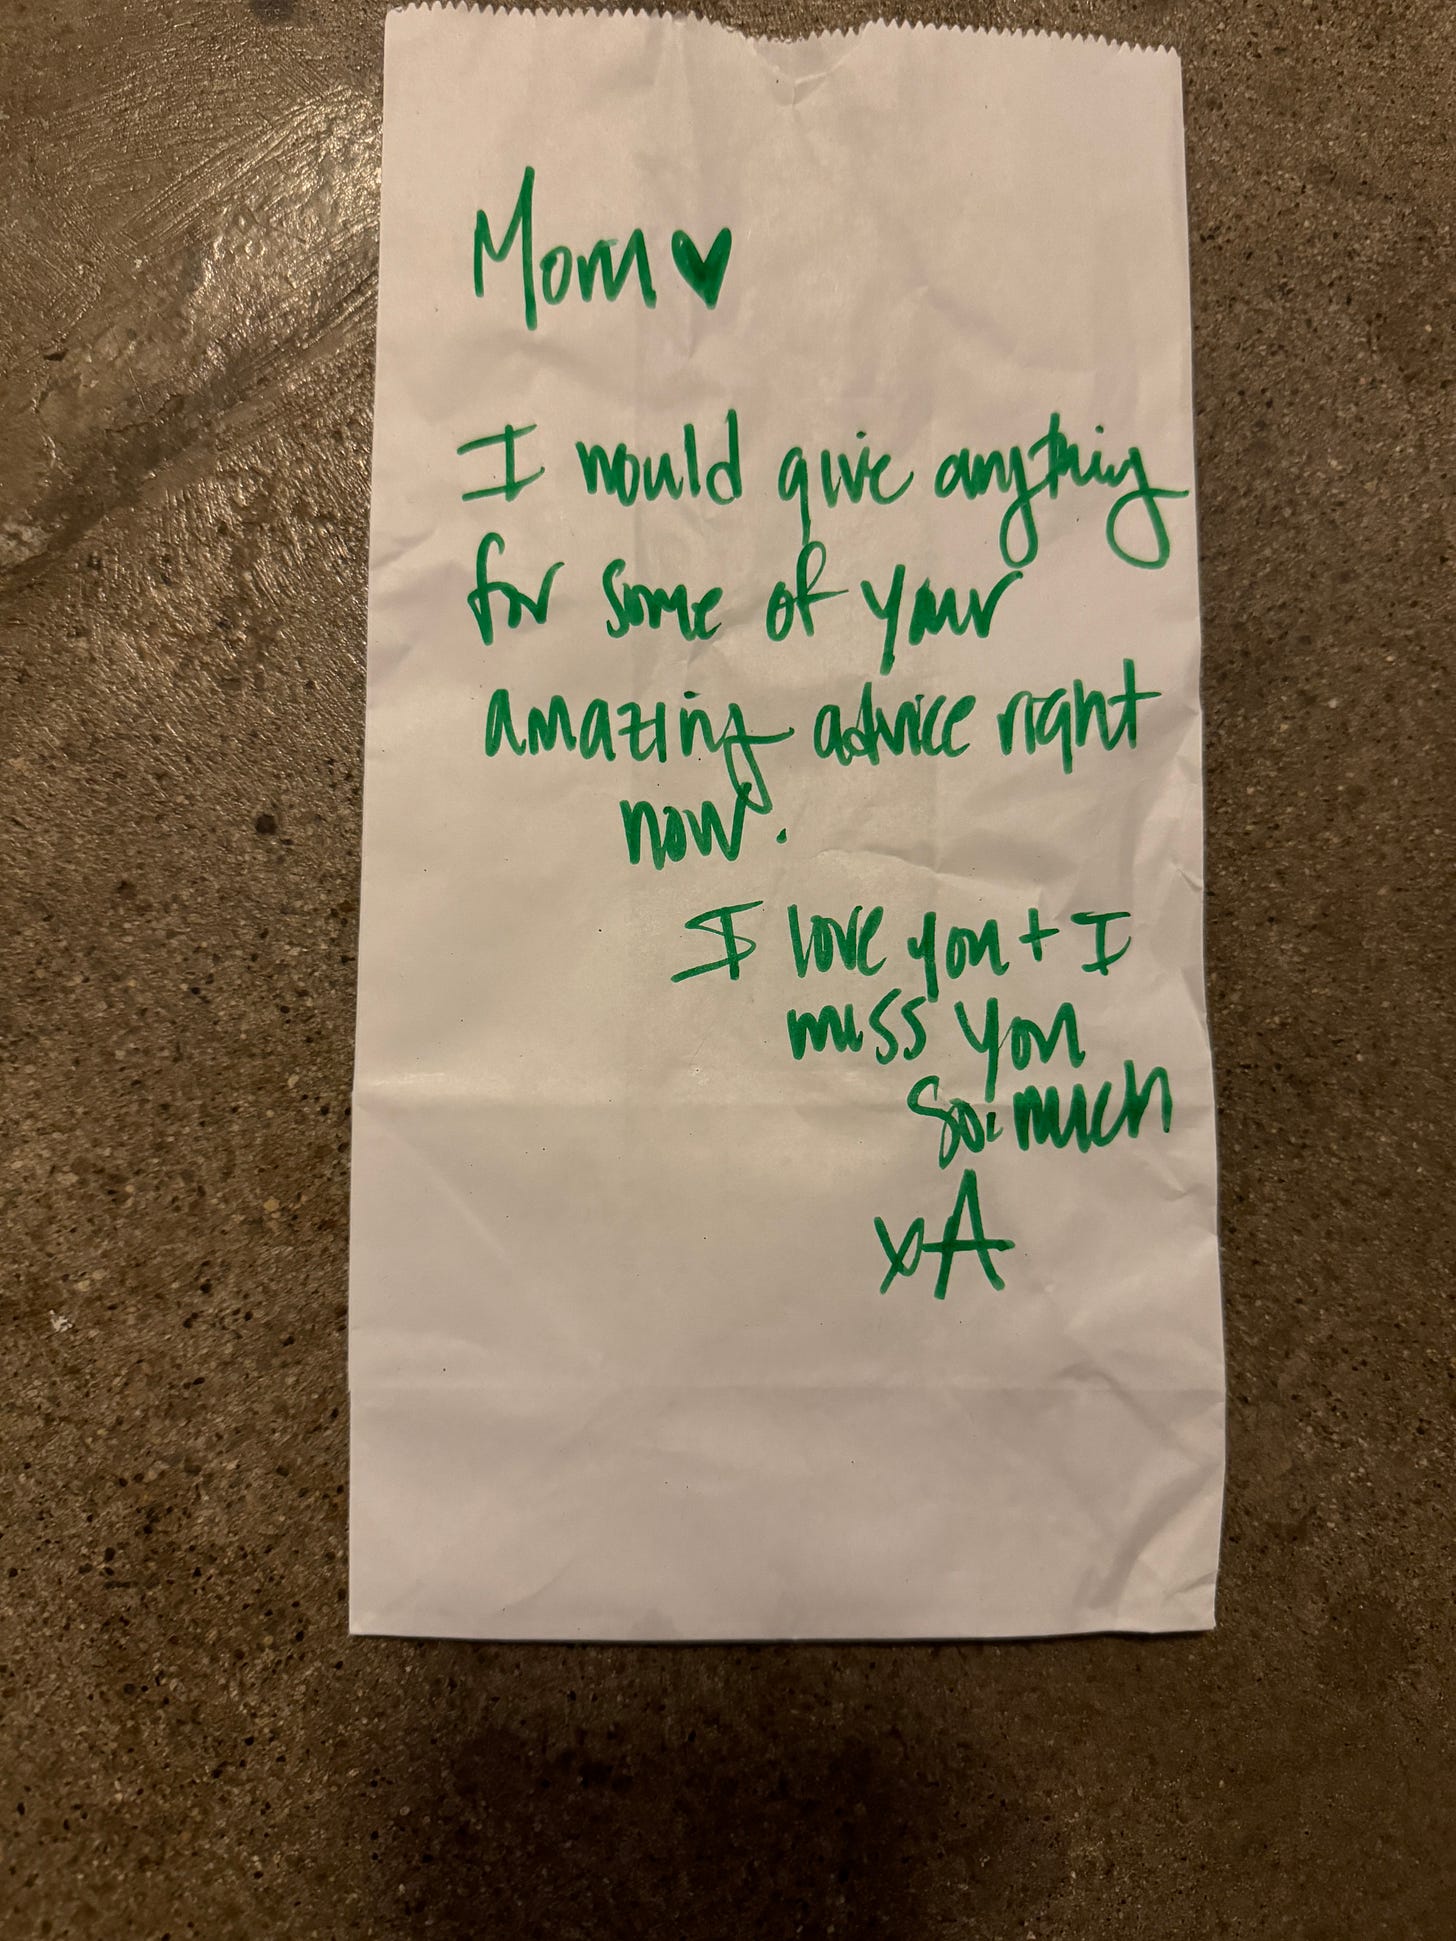 Mom ♥
I would give anything
for some of your
amazing advice right
now.
I love you + I
miss you
so much
xA